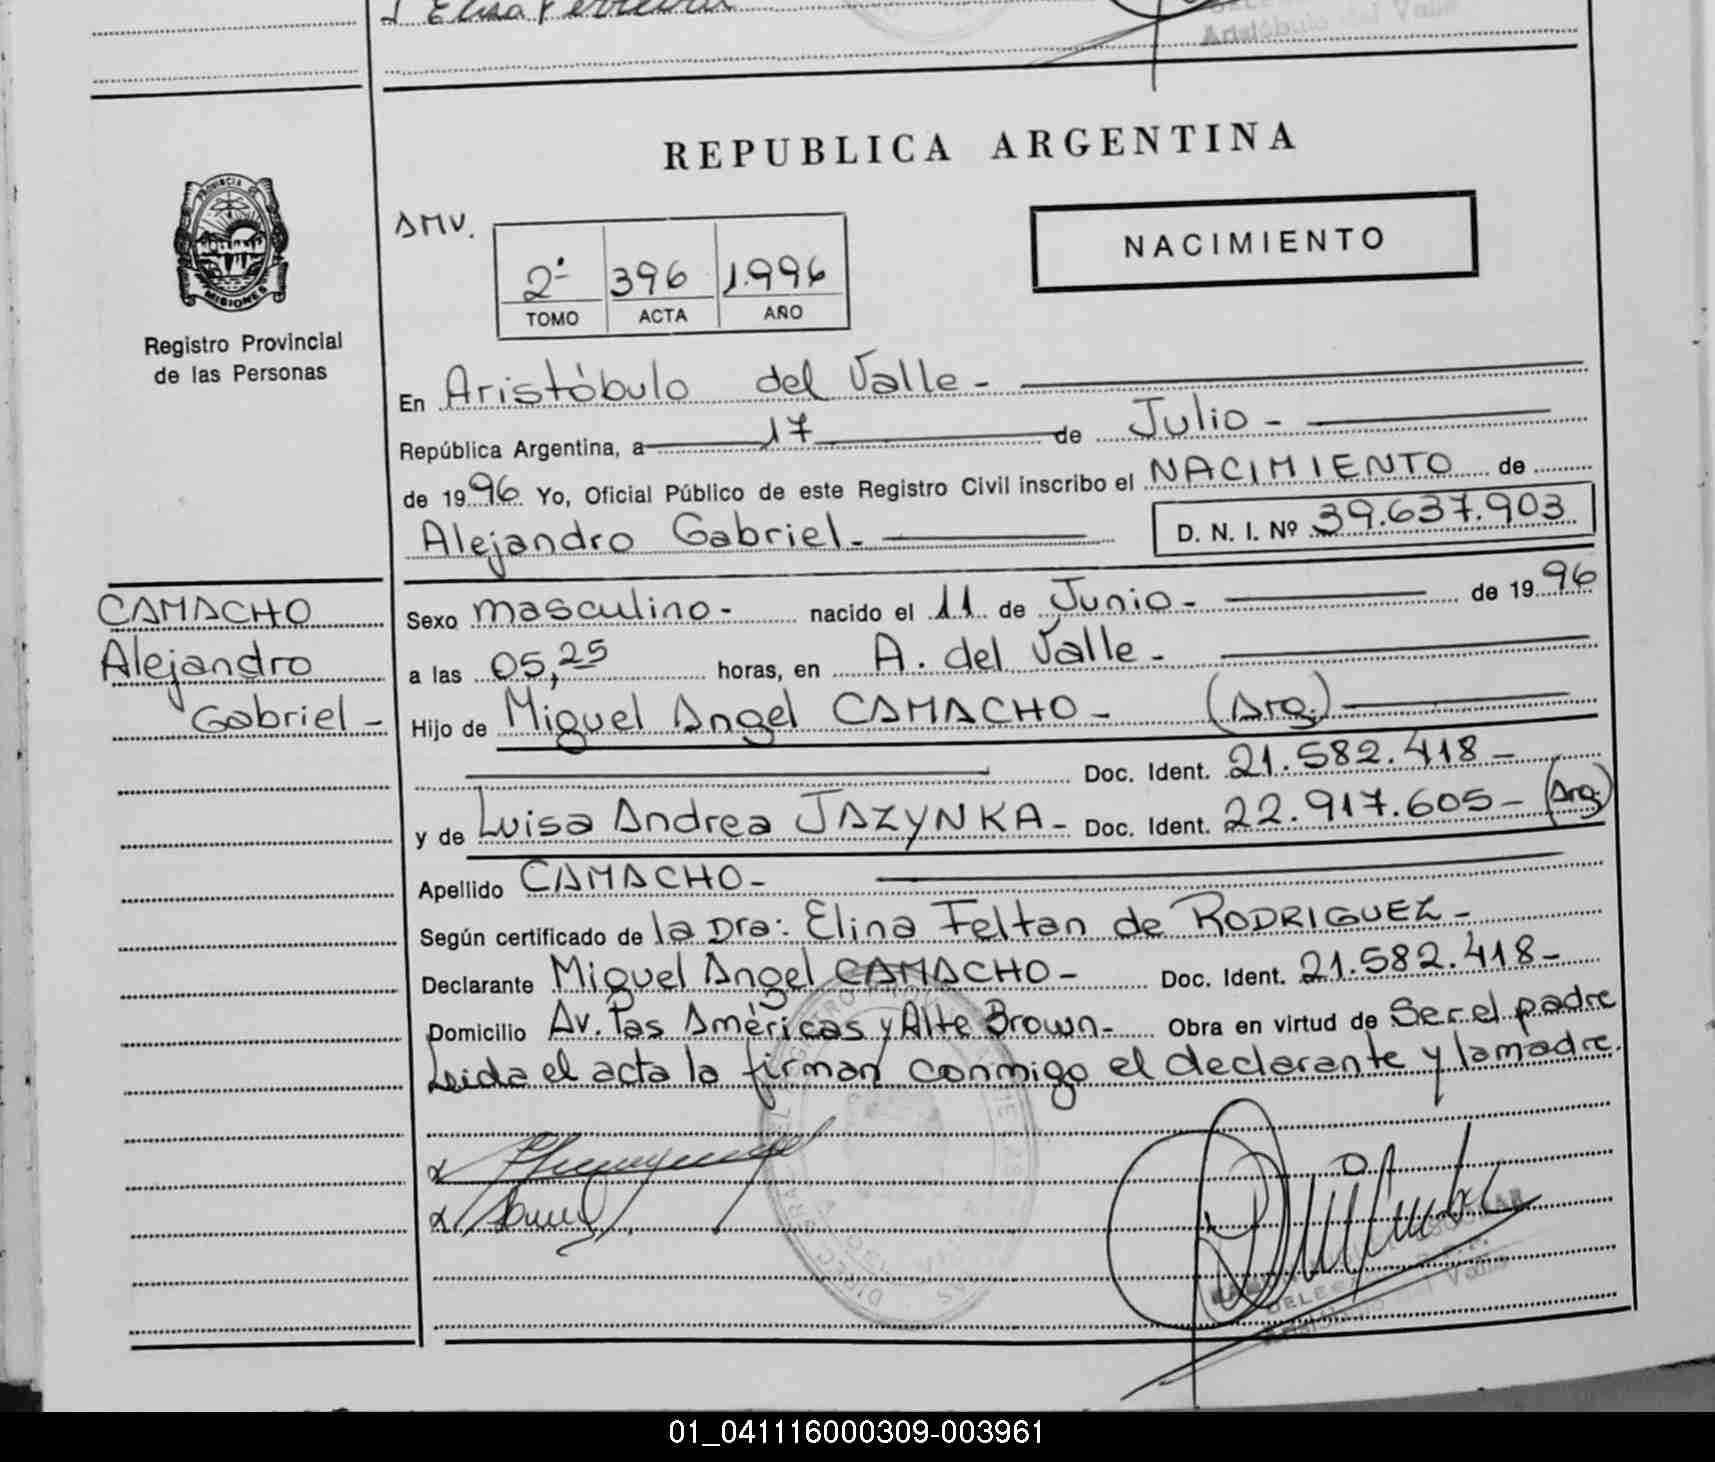 Aristóbulo del Valle
REPUBLICA ARGENTINA
PROVINCIA DE
MISIONES
Registro Provincial
de las Personas
AMV.
2ª 396 1.996
TOMO ACTA AÑO
NACIMIENTO
En Aristóbulo del Valle -
República Argentina, a 17 de Julio -
de 1996 Yo, Oficial Público de este Registro Civil inscribo el NACIMIENTO de
Alejandro Gabriel - D. N. I. Nº 39.637.903
CAMACHO
Alejandro
Gabriel -
Sexo masculino - nacido el 11 de Junio - de 1996
a las 05,25 horas, en A. del Valle -
Hijo de Miguel Angel CAMACHO - (Arg.)
Doc. Ident. 21.582.418 -
y de Luisa Andrea JAZYNKA - Doc. Ident. 22.917.605 - (Arg.)
Apellido CAMACHO -
Según certificado de la Dra: Elina Feltan de RODRIGUEZ -
Declarante Miguel Angel CAMACHO - Doc. Ident. 21.582.418 -
Domicilio Av. las Américas y Alte Brown - Obra en virtud de Ser el padre
Leida el acta la firman conmigo el declarante y la madre.
01_041116000309-003961